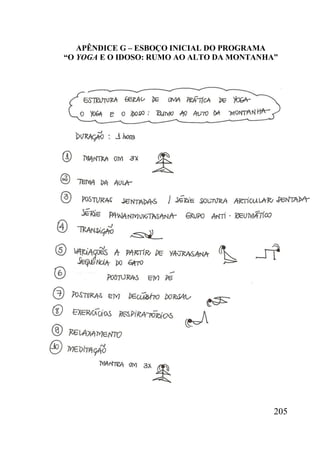 APÊNDICE G – ESBOÇO INICIAL DO PROGRAMA
“O YOGA E O IDOSO: RUMO AO ALTO DA MONTANHA”
ESTRUTURA GERAL DE UMA PRÁTICA DE YOGA-
O YOGA E O IDOSO: RUMO AO ALTO DA MONTANHA-
DURAÇÃO: 1 hora
1 MANTRA OM 3X
2 TEMA DA AULA
3 POSTURAS SENTADAS / SÉRIE SOLTURA ARTICULAR SENTADA-
SÉRIE PAWANMUKTASANA- GRUPO ANTI-REUMÁTICO
4 TRANSIÇÃO
5 VARIAÇÕES A PARTIR DE VAJRASANA-
SEQUÊNCIA DO GATO
6 POSTURAS EM PÉ
7 POSTURAS EM DECÚBITO DORSAL
8 EXERCÍCIOS RESPIRATÓRIOS
9 RELAXAMENTO
10 MEDITAÇÃO
MANTRA OM 3X
205